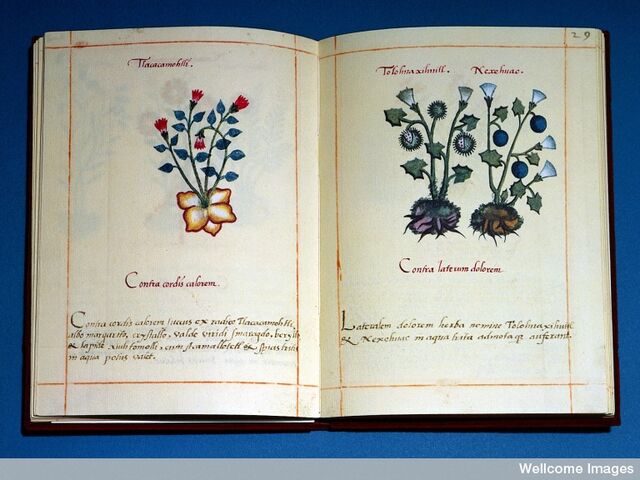 Tlacacamohtli.
Contra cordis calorem.
Contra cordis calorem succus ex radice Tlacacamohtli,
albo margarito, crystallo, valde viridi smaragdo, beryllo
& lapide xiuhtomolli, cum tlamallotetl & spiris tritis
in aqua potus valet.
29
Tolohuaxihuitl. Nexehuac.
Contra laterum dolorem.
Lateralem dolorem herbæ nomine Tolohuaxihuitl
& Nexehuac in aqua tritæ admotæque auferunt.
Wellcome Images